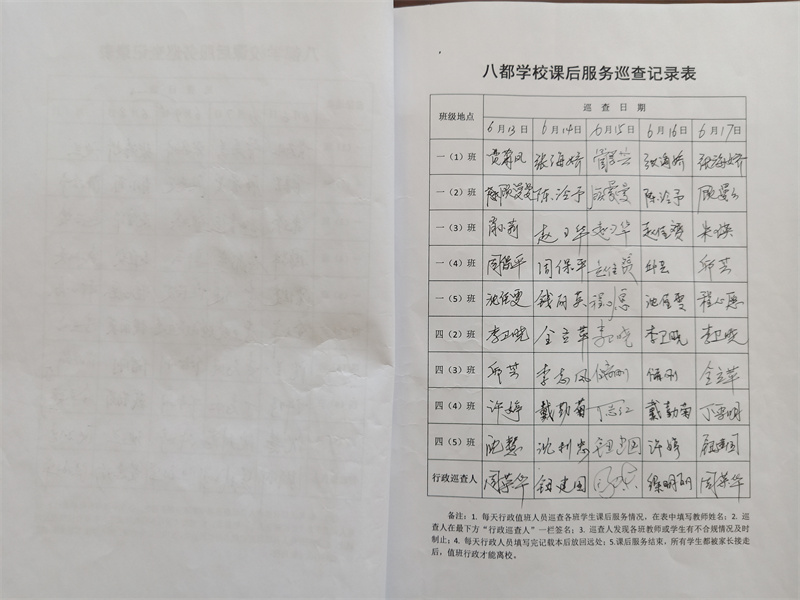 八都学校课后服务巡查记录表
班级地点 巡 查 日 期
6月13日 6月14日 6月15日 6月16日 6月17日
一（1）班 张海娇 张海娇 张海娇
一（2）班 陈泠予 陈泠予
一（3）班 赵卫华 赵卫华 赵佳赟
一（4）班 周保平 周保平 赵佳赟 邱芸 邱芸
一（5）班 沈佳雯 钱丽英 程心愿 沈佳雯 程心愿
四（2）班 李卫晓 金立苹 李卫晓 李卫晓 李卫晓
四（3）班 邱芸 李志凤 金立苹
四（4）班 许婷 戴勤菊 丁志江 戴勤菊
四（5）班 沈慧 沈利忠 钮建国 许婷
行政巡查人 周荣华 钮建国 徐明明 周荣华
备注：1. 每天行政值班人员巡查各班学生课后服务情况，在表中填写教师姓名；2. 巡
查人在最下方“行政巡查人”一栏签名；3. 巡查人发现各班教师或学生有不合规情况及时
制止；4. 每天行政人员填写完记载本后放回远处；5.课后服务结束，所有学生都被家长接走
后，值班行政才能离校。